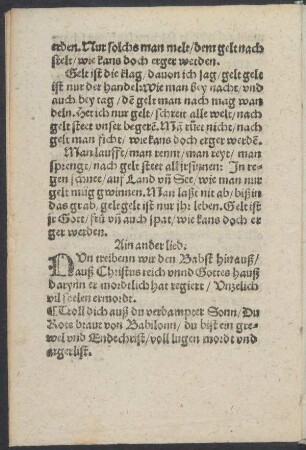 erden. Nur solchs man melt/ dem gelt nach
stelt/ wie kans doch erger werden.
Gelt ist die klag/ dauon ich sag/ gelt gelt
ist nur der handel: Wie man bey nacht/ vnd
auch bey tag/ dē gelt man nach mag wan
deln. Het ich nur gelt/ schreit alle welt/ nach
gelt steet vnser begerē. Mā rüet nicht/ nach
gelt man ficht/ wie kans doch erger werdē.
Man lauffe/ man rennt/ man reyt/ man
sprengt/ nach gelt steet all jr sinnen: In re-
gen/ schnee/ auf Land vñ See/ wie man nur
gelt müg gwinnen. Man laßt nit ab/ biß in
das grab/ gelt gelt ist nur jhr leben. Gelt ist
jr Gott/ frü vñ auch spat/ wie kans doch er
ger werden.
Ain ander lied.
NUn treiben wir den Babst hinauß/
auß Christus reich vnnd Gottes hauß
darynn er mordtlich hat regiert/ Vnzelich
vil seelen ermordt.
¶ Troll dich auß du verdampter Sonn/ Du
Rote braut von Babilonn/ du bist ein gre-
wel vnd Endechrist/ voll lugen mordt vnd
argerlist.